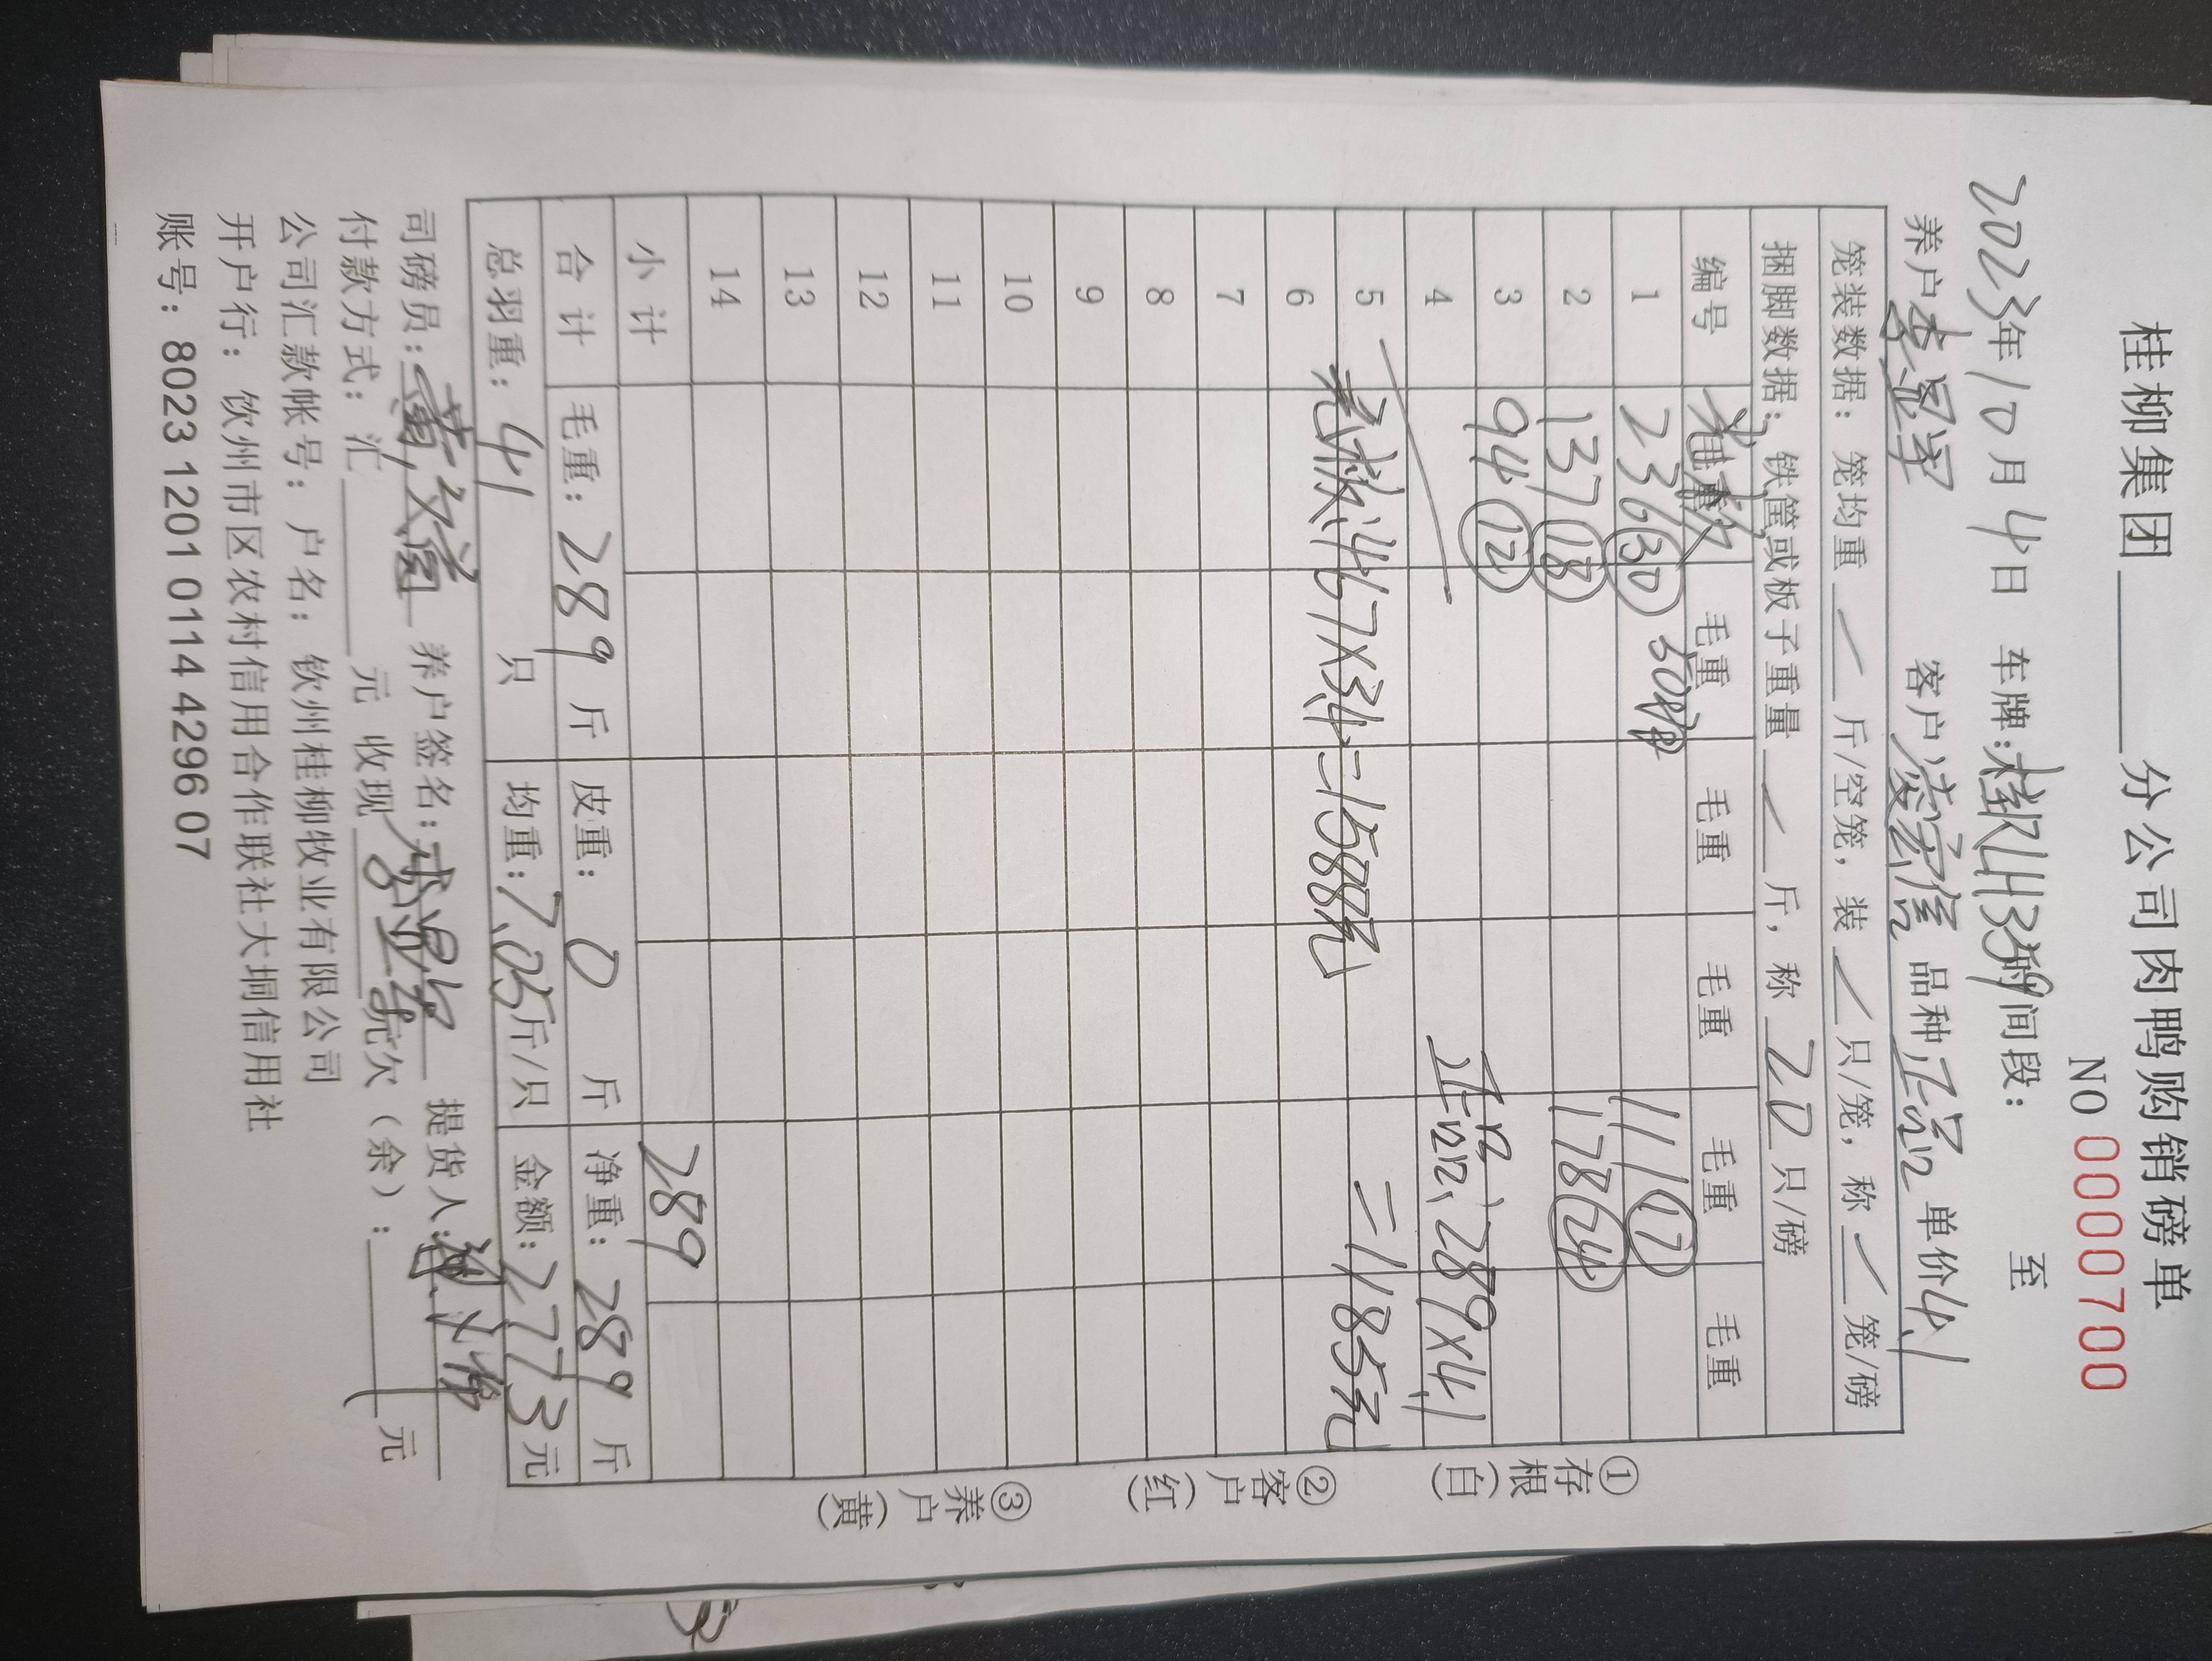 桂柳集团 分公司肉鸭购销磅单
NO 0000700
2023年10月4日 车牌: 间段: 至
养户 客户 凌家信 品种 正品 单价 4.1
笼装数据: 笼均重 / 斤/空笼, 装 / 只/笼, 称 / 笼/磅
捆脚数据: 铁筐或板子重量 / 斤, 称 20 只/磅
编号 毛重 毛重 毛重 毛重 毛重
1 236 (30) 111 (17)
2 137 (18) 178 (24)
3 94 (12)
4 正品: 289×4.1
5 =1185元
6 467×3.4=1588元
7
8
9
10
11
12
13
14
小计 289
合计 毛重: 289 斤 皮重: 0 斤 净重: 289 斤
总羽重: 41 只 均重: 7.05 斤/只 金额: 2773元
司磅员: 养户签名: 提货人:
付款方式: 汇 元 收现 元欠(余): 元
公司汇款帐号: 户名: 钦州桂柳牧业有限公司
开户行: 钦州市区农村信用合作联社大垌信用社
账号: 8023 1201 0114 4296 07
①存根(白)
②客户(红)
③养户(黄)